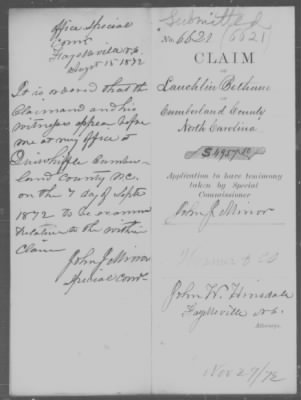 Office Special
Comr
Fayetteville N.C.
Sept 15 1872
It is ordered that the
Claimant and his
witnesses appear before
me at my Office at
Cumber-
land County N.C.
on the 7 day of Septr
1872 to be examined
relative to the within
Claim
John J Minor
Special Comr
Submitted
No. 6620 (6621)
CLAIM
OF
Lauchlin Bethune
OF
Cumberland County
North Carolina.
$4957.50
Application to have testimony
taken by Special
Commissioner
John J Minor
& Co
John W. Hinsdale
Fayetteville N.C.
Attorneys.
Nov 27/72